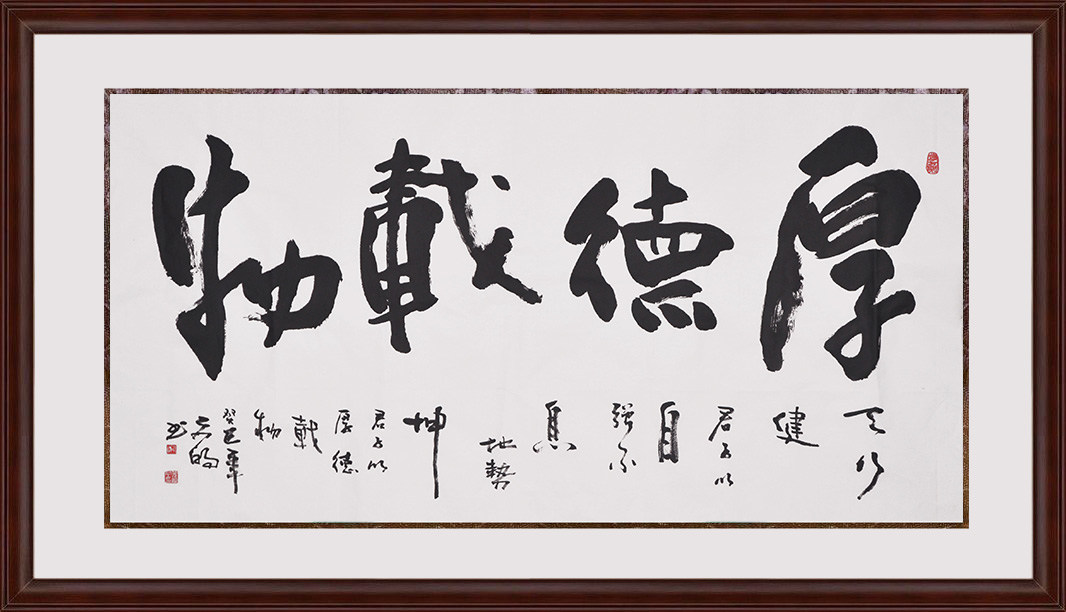 厚德載物
天行
健
君子以
自
强不
息
地勢
坤
君子以
厚德
載
物
癸巳年
书